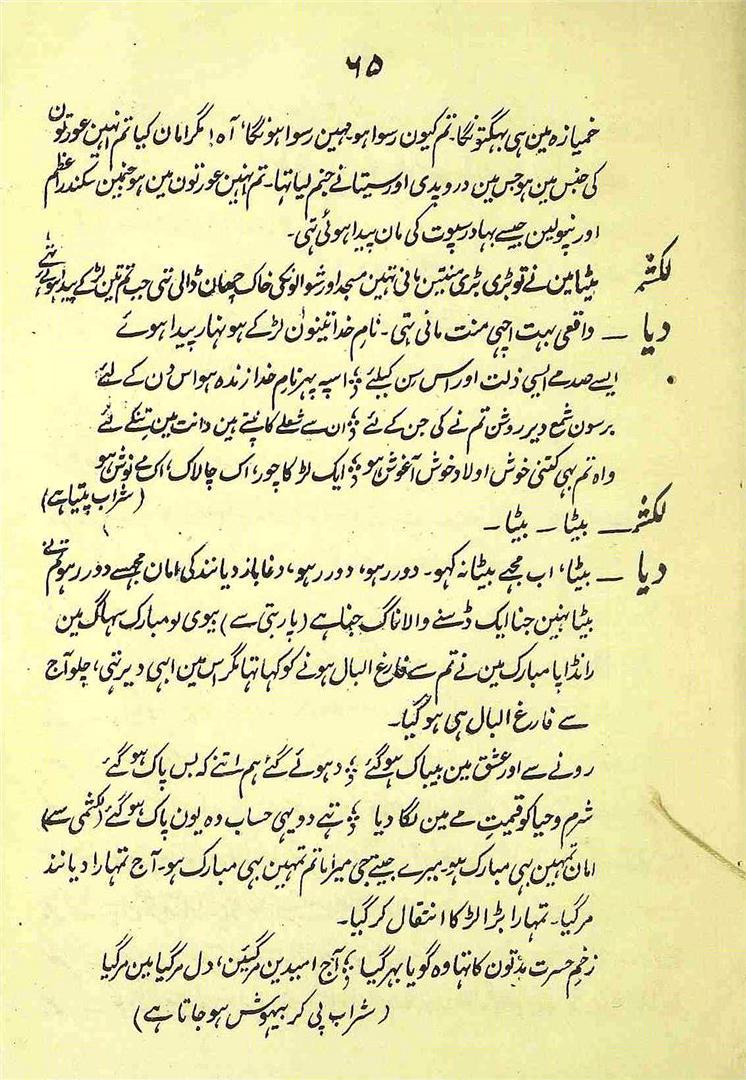 ۶۵
خمیازہ مین ہی بہگتونگا۔ تم کیون رسوا ہو۔ مہین رسوا ہونگا، آہ! مگر امان کیا تم انہین عورتون
کی جنس مین ہو جس مین دروپدی اور سیتا نے جنم لیا تہا۔ تم انہین عورتون مین ہو جنمین سکندر اعظم
اور نپولین جیسے بہادر سپوت کی مان پیدا ہوئی تہی۔
لکشم بیٹا مین نے تو بڑی بڑی منتین مانی تہین مسجد اور شوالونکی خاک چھان ڈالی تہی جب تم تین لڑکے پیدا ہوئے تہے
دیا — واقعی بہت اچھی منت مانی تہی۔ نامِ خدا تینون لڑکے ہونہار پیدا ہوئے
ایسے صدمے ایسی ذلت اور اس سن کیلئے ؛ اسپہ پہر نامِ خدا زندہ ہو اس دن کے لئے
برسون شمع دیر روشن تم نے کی جن کے لئے ؛ ان سے شعلے کانپتے ہین دانت مین تنکے لئے
واہ تم بہی کتنی خوش اولاد خوش آغوش ہو ؛ ایک لڑکا چور، اک چالاک، اک مے نوش ہو
(شراب پیتا ہے)
لکشم — بیٹا — بیٹا۔
دیا — بیٹا، اب مجھے بیٹا نہ کہو۔ دور رہو، دور رہو، دغا باز دیانند کی امان مجھسے دور رہو تم نے
بیٹا نہین جنا ایک ڈسنے والا ناگ جنا ہے (پاربتی سے) بیوی لو مبارک سہاگ مین
رانڈاپا مبارک مین نے تم سے فارغ البال ہونے کو کہا تہا مگر اس مین ابہی دیر تہی، چلو آج
سے فارغ البال ہی ہو گیا۔
رونے سے اور عشق مین بیباک ہو گئے ؛ دہوئے گئے ہم اتنے کہ بس پاک ہو گئے
شرم و حیا کو قیمتِ مے مین لگا دیا ؛ تہے دو یہی حساب وہ یون پاک ہو گئے (لکشمی سے)
امان تمہین بہی مبارک ہو۔ میرے جیتے جی میرا ماتم تمہین بہی مبارک ہو۔ آج تمہارا دیانند
مر گیا۔ تمہارا بڑا لڑکا انتقال کر گیا۔
زخمِ حسرت مدتون کا تہا وہ گویا بہر گیا ؛ آج امیدین مر گئین، دل مر گیا مین مر گیا
(شراب پی کر بیہوش ہو جاتا ہے)